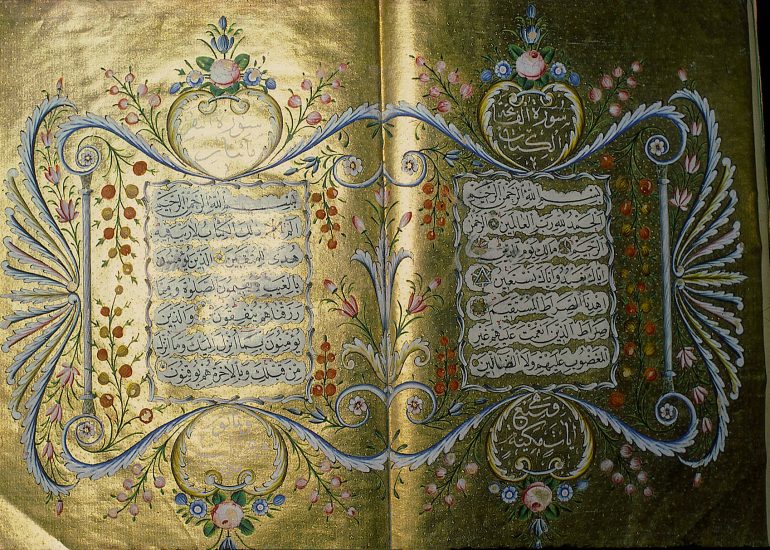 سورة الفاتحة
الكتاب
بسم الله الرحمن الرحيم
الحمد لله رب العالمين الرحمن
الرحيم ملك يوم الدين
اياك نعبد واياك نستعين
اهدنا الصراط المستقيم
صراط الذين انعمت عليهم غير
المغضوب عليهم ولا الضالين
وهي سبع
آيات مكية
سورة
بسم الله الرحمن الرحيم
الم ذلك الكتاب لا ريب فيه
هدى للمتقين الذين يؤمنون
بالغيب ويقيمون الصلوة ومما
رزقناهم ينفقون والذين
يؤمنون بما انزل اليك وما انزل
من قبلك وبالآخرة هم يوقنون